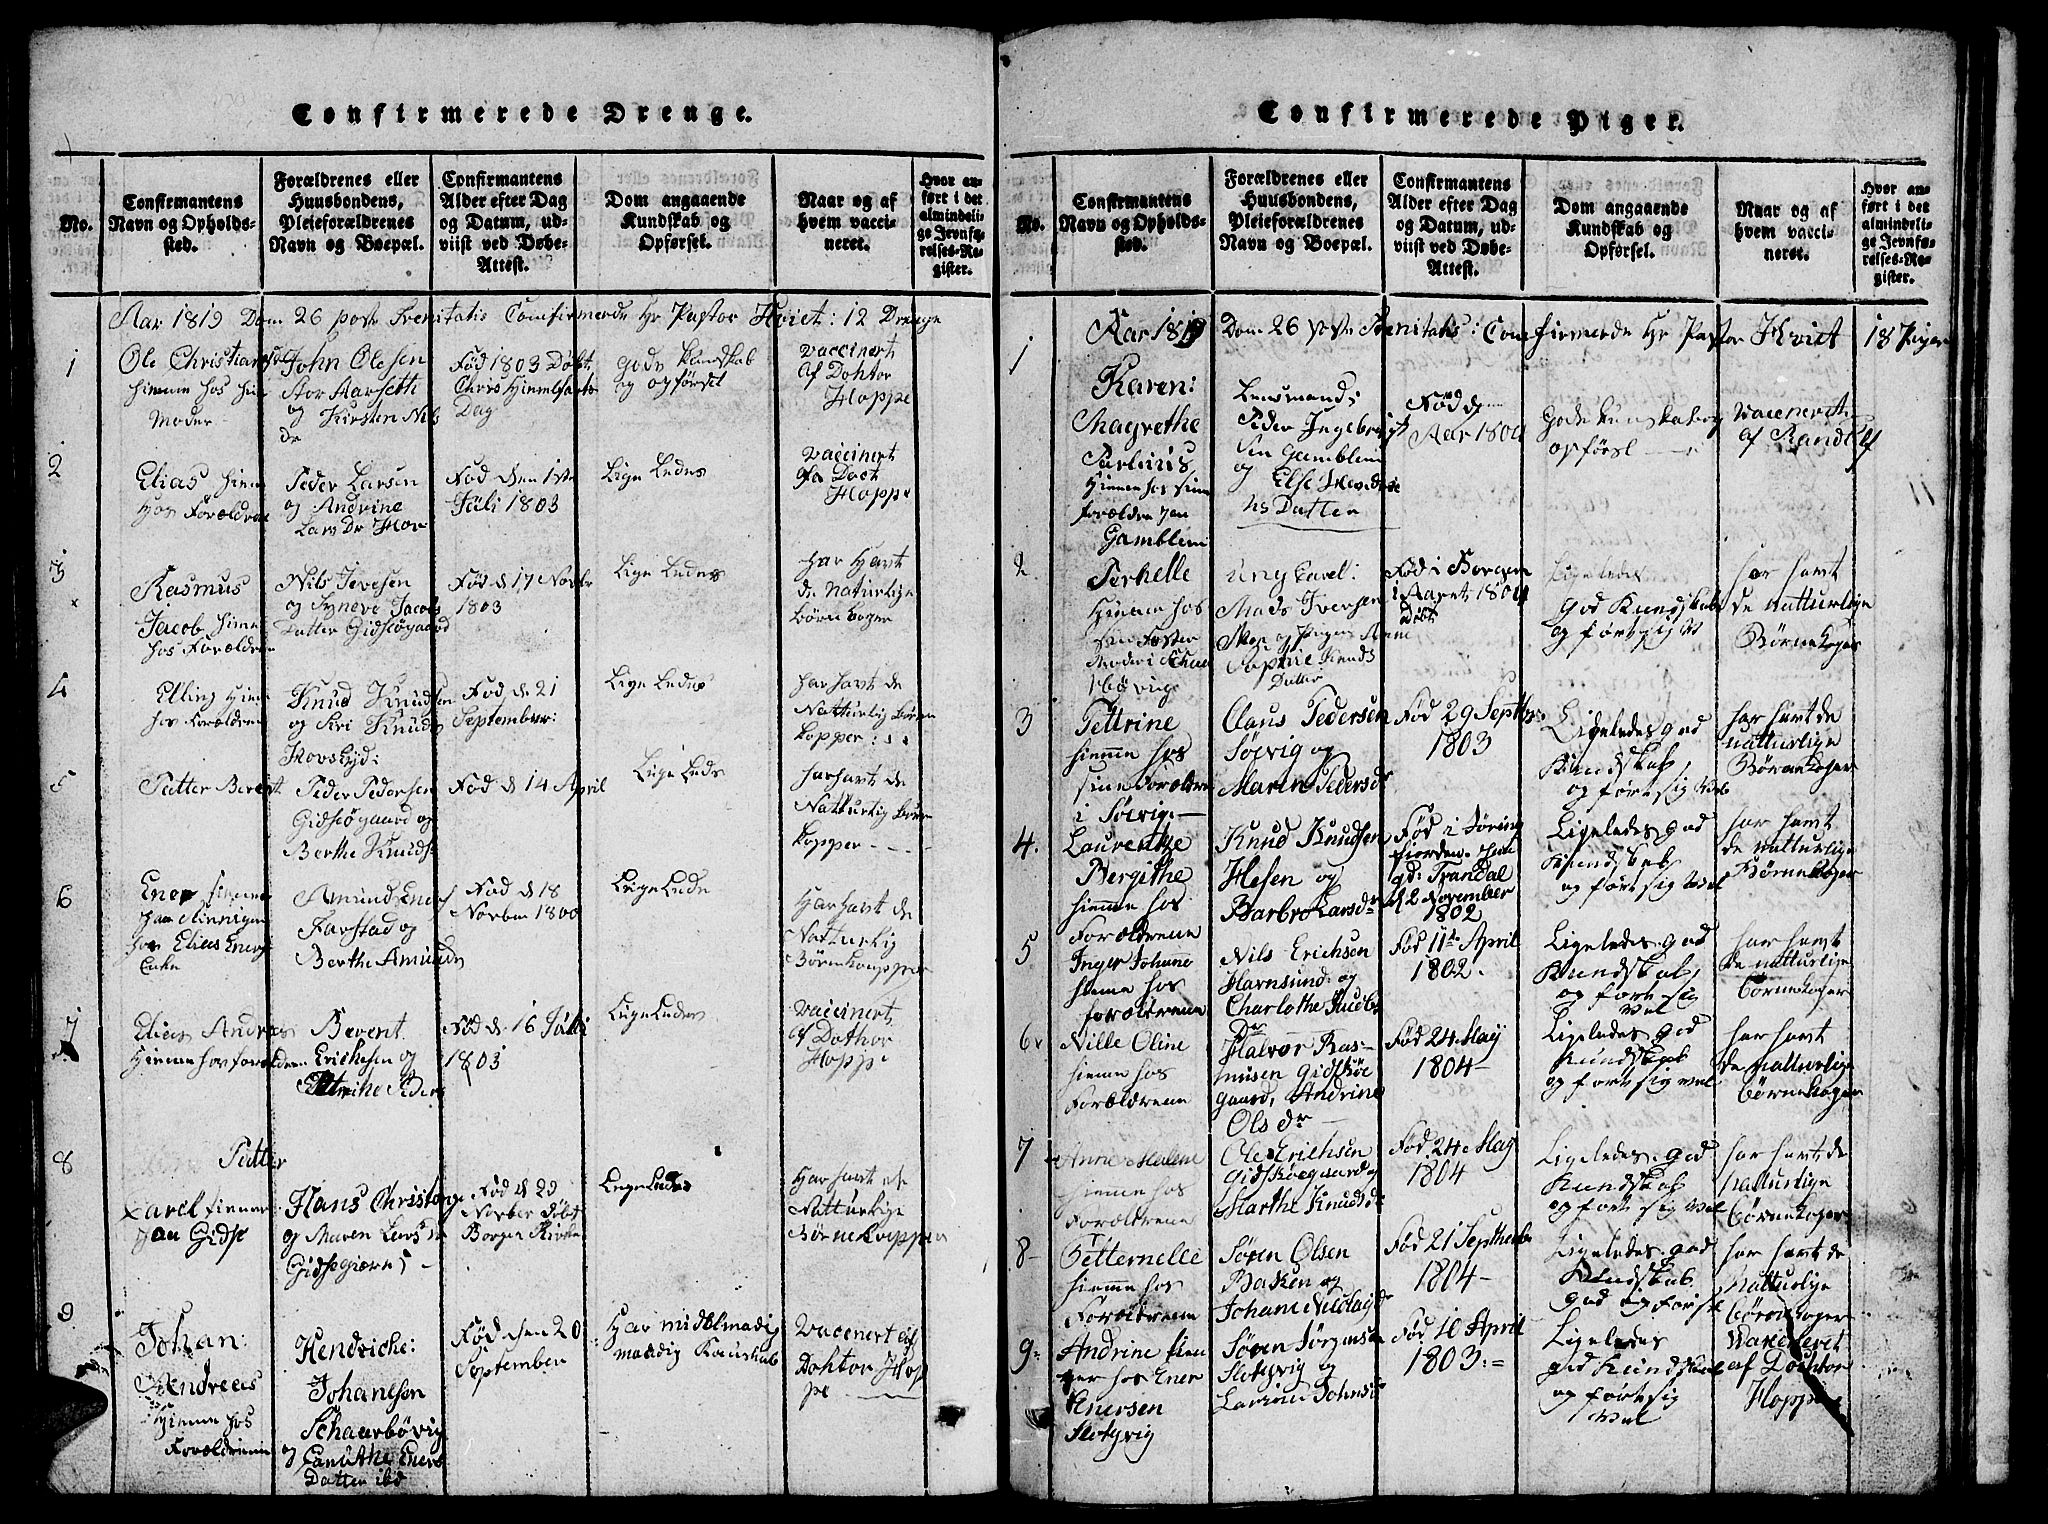 Confirmerede Drenge.
No.
Confirmantens
Navn og Opholds-
sted.
Forældrenes eller
Huusbondens,
Pleieforældrenes
Navn og Boepæl.
Confirmantens
Alder efter Dag
og Datum, ud-
viist ved Døbe-
Attest.
Dom angaaende
Kundskab og
Opførsel.
Naar og af
hvem vacci-
neret.
Hvor an-
ført i det
almindeli-
ge Jevnfø-
relses-Re-
gister.
Aar 1819 Dom 26 post Trenitatis Comfirmerde Hr Pastor Hviet: 12 Drenge
1
Ole Christian
hiemme hos
Moder
John Olesen
Stor Aarseth
og Kirsten Nils
dr
Fød 1803 Døbt
Chris Himmelfarts
Dag
gode Kundskab
og opførsel
vaccinert
af Dohtor
Hoppe
2
Elias hiem
hos Forældrene
Peder Larsen
og Andrine
Lars Dr
Fød den 1ste
Juli 1803
Lige Ledes
vaccinert
af Doct
Hoppe
3
Rasmus
Jacob hiem
hos Forældrene
Nils Ivesen
og Syneve Jacobs
Datter Gidsøgaard
Fød d 17 Novbr
1803
Lige Ledes
har Havt
de Naturlige
børn koper
4
Elling hiem
hos Forældrene
Knud Knudsen
og Siri Knuds
Fød d 21
September:
Lige Ledes
har havt de
Natturlig Børne
kopper:
5
Petter Bernt
Peder Pedersen
Gidsøgaard og
Berthe Knuds
Fød d 14 April
Lige Leds
har havt de
Natturlig Børn
kopper
6
Ener
hos Elias Eners
Enke
Amund Eners
Farstad og
Berthe Amunds
Fød d 18
Norben 1800
Lige Lede
Har havt de
Natturlig
Børnekopper
7
Elias Andreas
Hiemme hos forældrene
Bernt
Erichsen og
Fød d 16 Julli
1803
Lige Ledes
vaccinert
af Dothor
Hoppe
8
Petter
Karel
Hans Christens
og Maren Lars dr
Fød d 29
Norber Døbt
Borgen Kirke
Lige Ledes
Har havt de
Natturlige
Børne Kopper
9
Johan:
Andreas
hiemme hos
Forældrenne
Hendriche:
Johanesen
Schaarbøvig
og Canuthe Eners
Datter ibd
Fød den 20
September
Har midelmadig
maadig Kundskab
Vaccinert af
Dohtor Hop
pe
Confirmerede Piger.
No.
Confirmantens
Navn og Opholds-
sted.
Forældrenes eller
Huusbondens,
Pleieforældrenes
Navn og Boepæl.
Confirmantens
Alder efter Dag
og Datum, ud-
viist ved Døbe-
Attest.
Dom angaaende
Kundskab og
Opførsel.
Naar og af
hvem vacci-
neret.
Hvor an-
ført i det
almindeli-
ge Jevnfø-
relses-Re-
gister.
Aar 1819 Dom 26 post Trenitatis: Comfirmerde Hr Pastor Hviet 18 Piger
1
Karen:
Magrethe
Hiemme hos sine
Forældre
Gamblem
Lensmand:
Peder Ingebrigt
sen Gamblem
og Else
Datter
Fød d
Aar 1804
Gode kunskab og
opførsl
vaccineret
af Randlef
2
Perhelle
Hiemme hos
sin Foster
Moder
Ung Carel:
Mads Iversen
Sophie Knuds
Datter
Fød i Borgen
i Aaret 1804
døbt
Ligeledes
god Kundskab
og ført sig vel
har havt
de natturlige
Børnekoper
3
Pettrine
hiemme hos
sine Forældre
i Søevig
Claus Pedersen
Søevig og
Maren Pedersdr
Fød 29 Septbr
1803
Ligeledes god
Kundskab
og ført sig vel
har havt de
natturlige
Børnekoper
4.
Laurentze
Bergithe
hiemme hos
Forældrene
Knud Knudsen
Hesen og
Barbro Larsdr
Fød i Jøring
fiorden
gd: Trandal
d 2 November
1802
Ligeledes god
Kundskab
og ført sig vel
har havt
de natturlige
Børnekoper
5
Inger Johane
hiemme hos
forældrene
Nils Erichsen
Harnsund og
Charlothe Jacobs
Dr
Fød 11te April
1802.
Ligeledes god
Kundskab
og ført sig
vel
har havt
de natturlige
børnekoper
6
Nille Oline
hiemme hos
Forældrene
Halvor Ras-
musen Gidskøe
gaard, Andrine
Ols dr
Fød 24 May
1804
Ligeledes god
Kundskab
og ført sig vel
har havt
de natturlige
børnekoper
7
Anne Malene
hiemme hos
Forældrene
Ole Erichsen
Gidskøegaard og
Marthe Knudsdr
Fød 24 May
1804
Ligeledes god
Kundskab
og ført sig vel
har havt de
natturlige
børnekoper
8
Petternelle
hiemme hos
Forældrene
Søren Olsen
Bakken og
Johana Nicolaydr
Fød 21 Septhembr
1804
Ligeledes god
Kundskab
har havt de
natturlige
børnekoper
9
Andrine tien
ner hos Ener
Enersen
Slotgvig
Søren Jørgensen
Slotgvig og
Fød 10 April
1803:
Ligeledes
god Kundskab
og ført sig
vel
Vaccineret
af Dochtor
Hoppe